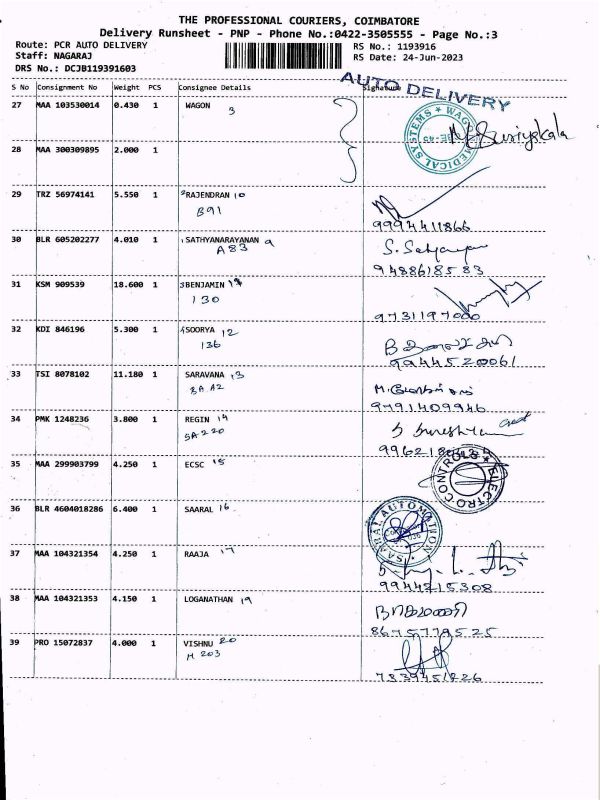 THE PROFESSIONAL COURIERS, COIMBATORE
Delivery Runsheet - PNP - Phone No.:0422-3505555 - Page No.:3
Route: PCR AUTO DELIVERY
Staff: NAGARAJ
DRS No.: DCJB119391603
RS No.: 1193916
RS Date: 24-Jun-2023
S No Consignment No Weight PCS Consignee Details Signature
AUTO DELIVERY
27 MAA 103530014 0.430 1 WAGON
3
28 MAA 300309895 2.000 1
29 TRZ 56974141 5.550 1 2 RAJENDRAN 10
B91
9994411866
30 BLR 605202277 4.010 1 1 SATHYANARAYANAN 9
A 83
9488618583
31 KSM 909539 18.600 1 3 BENJAMIN
130
9731197000
32 KDI 846196 5.300 1 4 SOORYA 12
136
9944520061
33 TSI 8078102 11.180 1 SARAVANA 13
BA A2
9791409946
34 PMK 1248236 3.800 1 REGIN 14
SA 220
35 MAA 299903799 4.250 1 ECSC 15
ELECTRO CONTROLS
36 BLR 4604018286 6.400 1 SAARAL 16
SAARAL AUTOMATION
37 MAA 104321354 4.250 1 RAAJA 17
9944215308
38 MAA 104321353 4.150 1 LOGANATHAN 19
8675779525
39 PRO 15072837 4.000 1 VISHNU 20
M 203